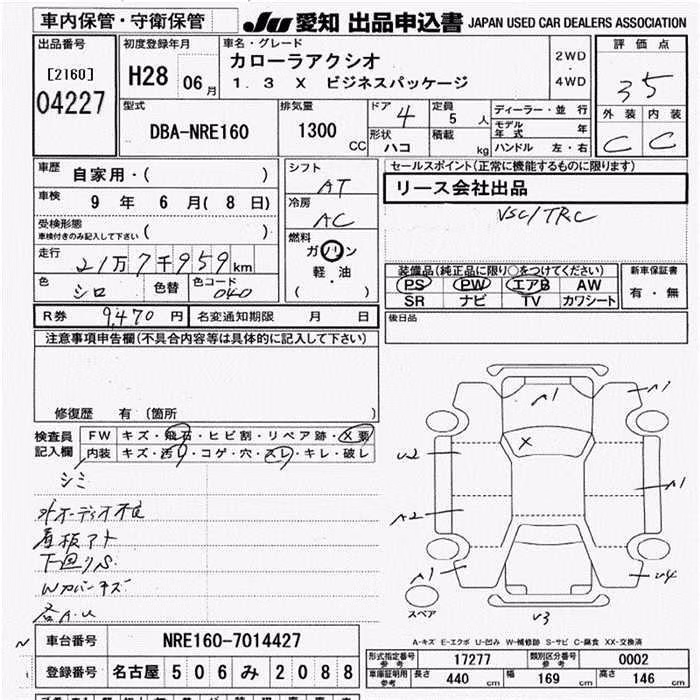 車内保管・守衛保管
JU 愛知 出品申込書 JAPAN USED CAR DEALERS ASSOCIATION
出品番号
[2160]
04227
初度登録年月
H28 06 月
車名・グレード
カローラアクシオ
1.3 X ビジネスパッケージ
2WD
・
4WD
評価点
3.5
外装 内装
C C
型式
DBA-NRE160
排気量
1300 CC
ドア 4
形状 ハコ
定員 5 人
積載 kg
ディーラー・並行
モデル年式 年
ハンドル 左・右
車歴 自家用・( )
車検 9 年 6 月( 8 日)
受検形態
車検付きのみ記入して下さい ( )
走行 21万7千959 km
色 シロ 色替 色コード 040
シフト AT
冷房 AC
燃料
ガソリン
軽・油
( )
セールスポイント(正常に機能するものに限ります)
リース会社出品
VSC/TRC
装備品(純正品に限り○をつけてください)
PS PW エアB AW
SR ナビ TV カワシート
新車保証書
有・無
R券 9,470 円 名変通知期限 月 日
後日品
注意事項申告欄(不具合内容等は具体的に記入して下さい)
修復歴 有 (箇所 )
検査員
記入欄
FW キズ・飛石・ヒビ割・リペア跡・X要
内装 キズ・汚れ・コゲ・穴・スレ・キレ・破レ
シミ
外オーディオ不良
看板アト
下回りS
Wカバーキズ
各A.U
A1
A1
X
U2
A2
A1
A1
U4
V3
スペア
A-キズ E-エクボ U-凹み W-補修跡 S-サビ C-腐食 XX-交換済
車台番号 NRE160-7014427
登録番号 名古屋 506 み 2088
型式指定番号 参考 17277 類別区分番号 参考 0002
車庫証明用 参考 長さ 440 cm 幅 169 cm 高さ 146 cm